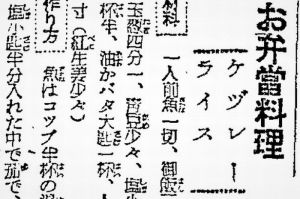 お弁當料理
ケヅレー
ライス
材料
一人前魚一切、御飯
玉葱四分一、青豆少々、塩
杯半、油かバタ大匙一杯、
寸（紅生姜少々）
作り方
魚はコップ半杯の
塩小匙半分入れた中で茹で、